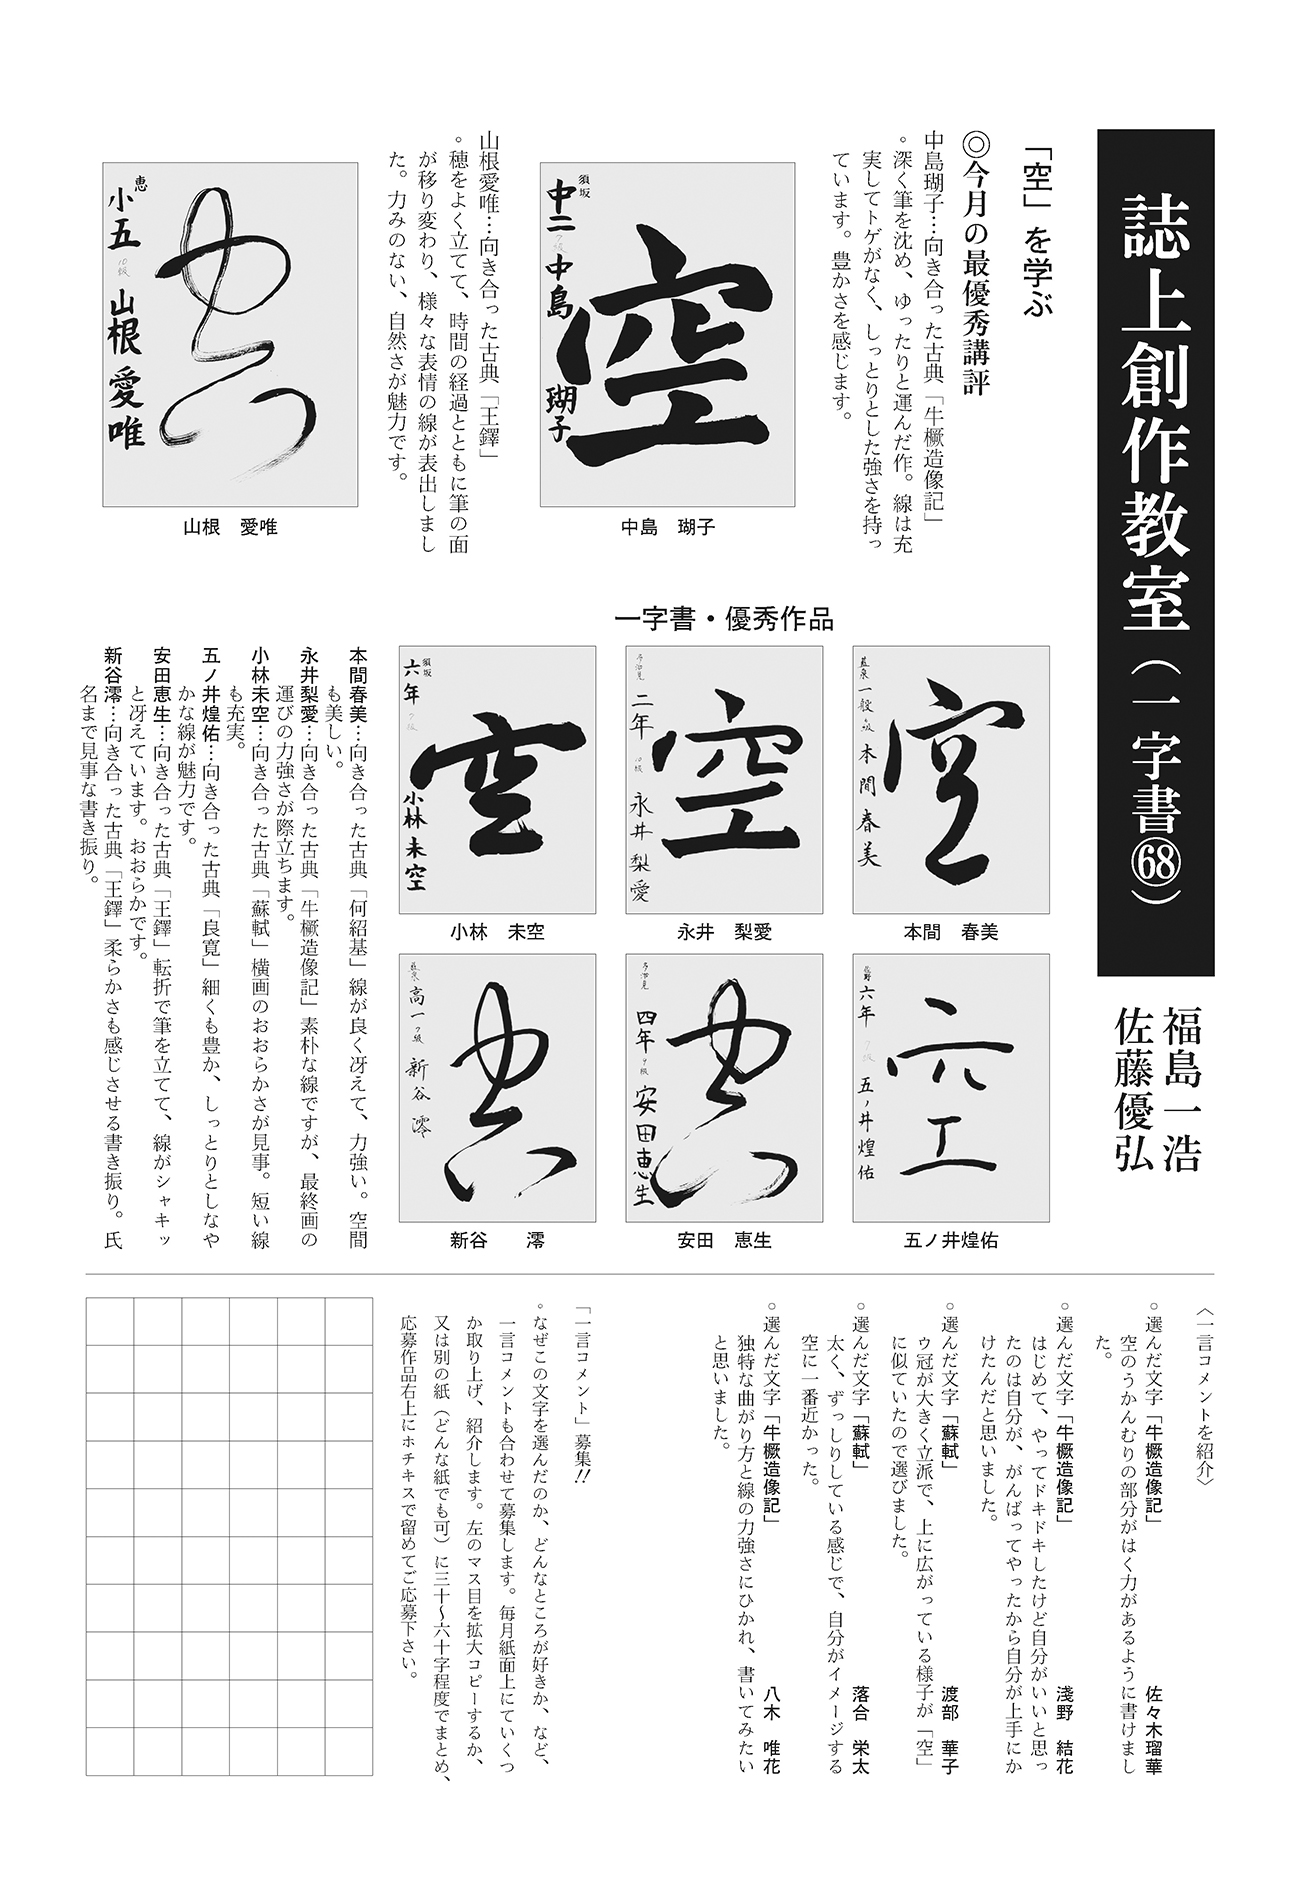 誌上創作教室（一字書68）
福島一浩
佐藤優弘
「空」を学ぶ
◎今月の最優秀講評
中島瑚子…向き合った古典「牛橛造像記」
。深く筆を沈め、ゆったりと運んだ作。線は充
実してトゲがなく、しっとりとした強さを持っ
ています。豊かさを感じます。
空
須坂
中二 7級 中島 瑚子
中島　瑚子
山根愛唯…向き合った古典「王鐸」
。穂をよく立てて、時間の経過とともに筆の面
が移り変わり、様々な表情の線が表出しまし
た。力みのない、自然さが魅力です。
空
恵
小五 10級 山根愛唯
山根　愛唯
一字書・優秀作品
空
一般 本間春美
本間　春美
空
二年 10級 永井梨愛
永井　梨愛
空
須坂
六年 7級 小林未空
小林　未空
空
六年 7級 五ノ井煌佑
五ノ井煌佑
空
四年 9級 安田恵生
安田　恵生
空
高一 7級 新谷澪
新谷　澪
本間春美…向き合った古典「何紹基」線が良く冴えて、力強い。空間
も美しい。
永井梨愛…向き合った古典「牛橛造像記」素朴な線ですが、最終画の
運びの力強さが際立ちます。
小林未空…向き合った古典「蘇軾」横画のおおらかさが見事。短い線
も充実。
五ノ井煌佑…向き合った古典「良寛」細くも豊か、しっとりとしなや
かな線が魅力です。
安田恵生…向き合った古典「王鐸」転折で筆を立てて、線がシャキッ
と冴えています。おおらかです。
新谷澪…向き合った古典「王鐸」柔らかさも感じさせる書き振り。氏
名まで見事な書き振り。
〈一言コメントを紹介〉
○選んだ文字「牛橛造像記」　佐々木瑠華
空のうかんむりの部分がはく力があるように書けまし
た。
○選んだ文字「牛橛造像記」　淺野　結花
はじめて、やってドキドキしたけど自分がいいと思っ
たのは自分が、がんばってやったから自分が上手にか
けたんだと思いました。
○選んだ文字「蘇軾」　渡部　華子
ウ冠が大きく立派で、上に広がっている様子が「空」
に似ていたので選びました。
○選んだ文字「蘇軾」　落合　栄太
太く、ずっしりしている感じで、自分がイメージする
空に一番近かった。
○選んだ文字「牛橛造像記」　八木　唯花
独特な曲がり方と線の力強さにひかれ、書いてみたい
と思いました。
「一言コメント」募集!!
。なぜこの文字を選んだのか、どんなところが好きか、など、
一言コメントも合わせて募集します。毎月紙面上にていくつ
か取り上げ、紹介します。左のマス目を拡大コピーするか、
又は別の紙（どんな紙でも可）に三十〜六十字程度でまとめ、
応募作品右上にホチキスで留めてご応募下さい。